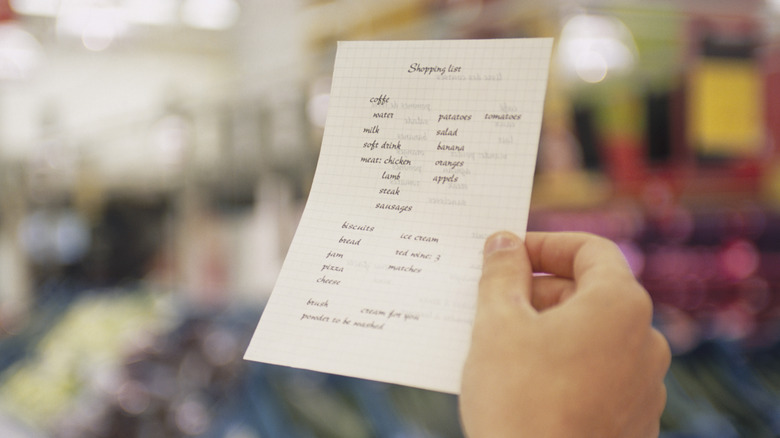 Shopping list
coffe
water patatoes tomatoes
milk salad
soft drink banana
meat: chicken oranges
lamb appels
steak
sausages
biscuits ice cream
bread red wine: 3
jam matches
pizza
cheese
brush cream for you
powder to be washed